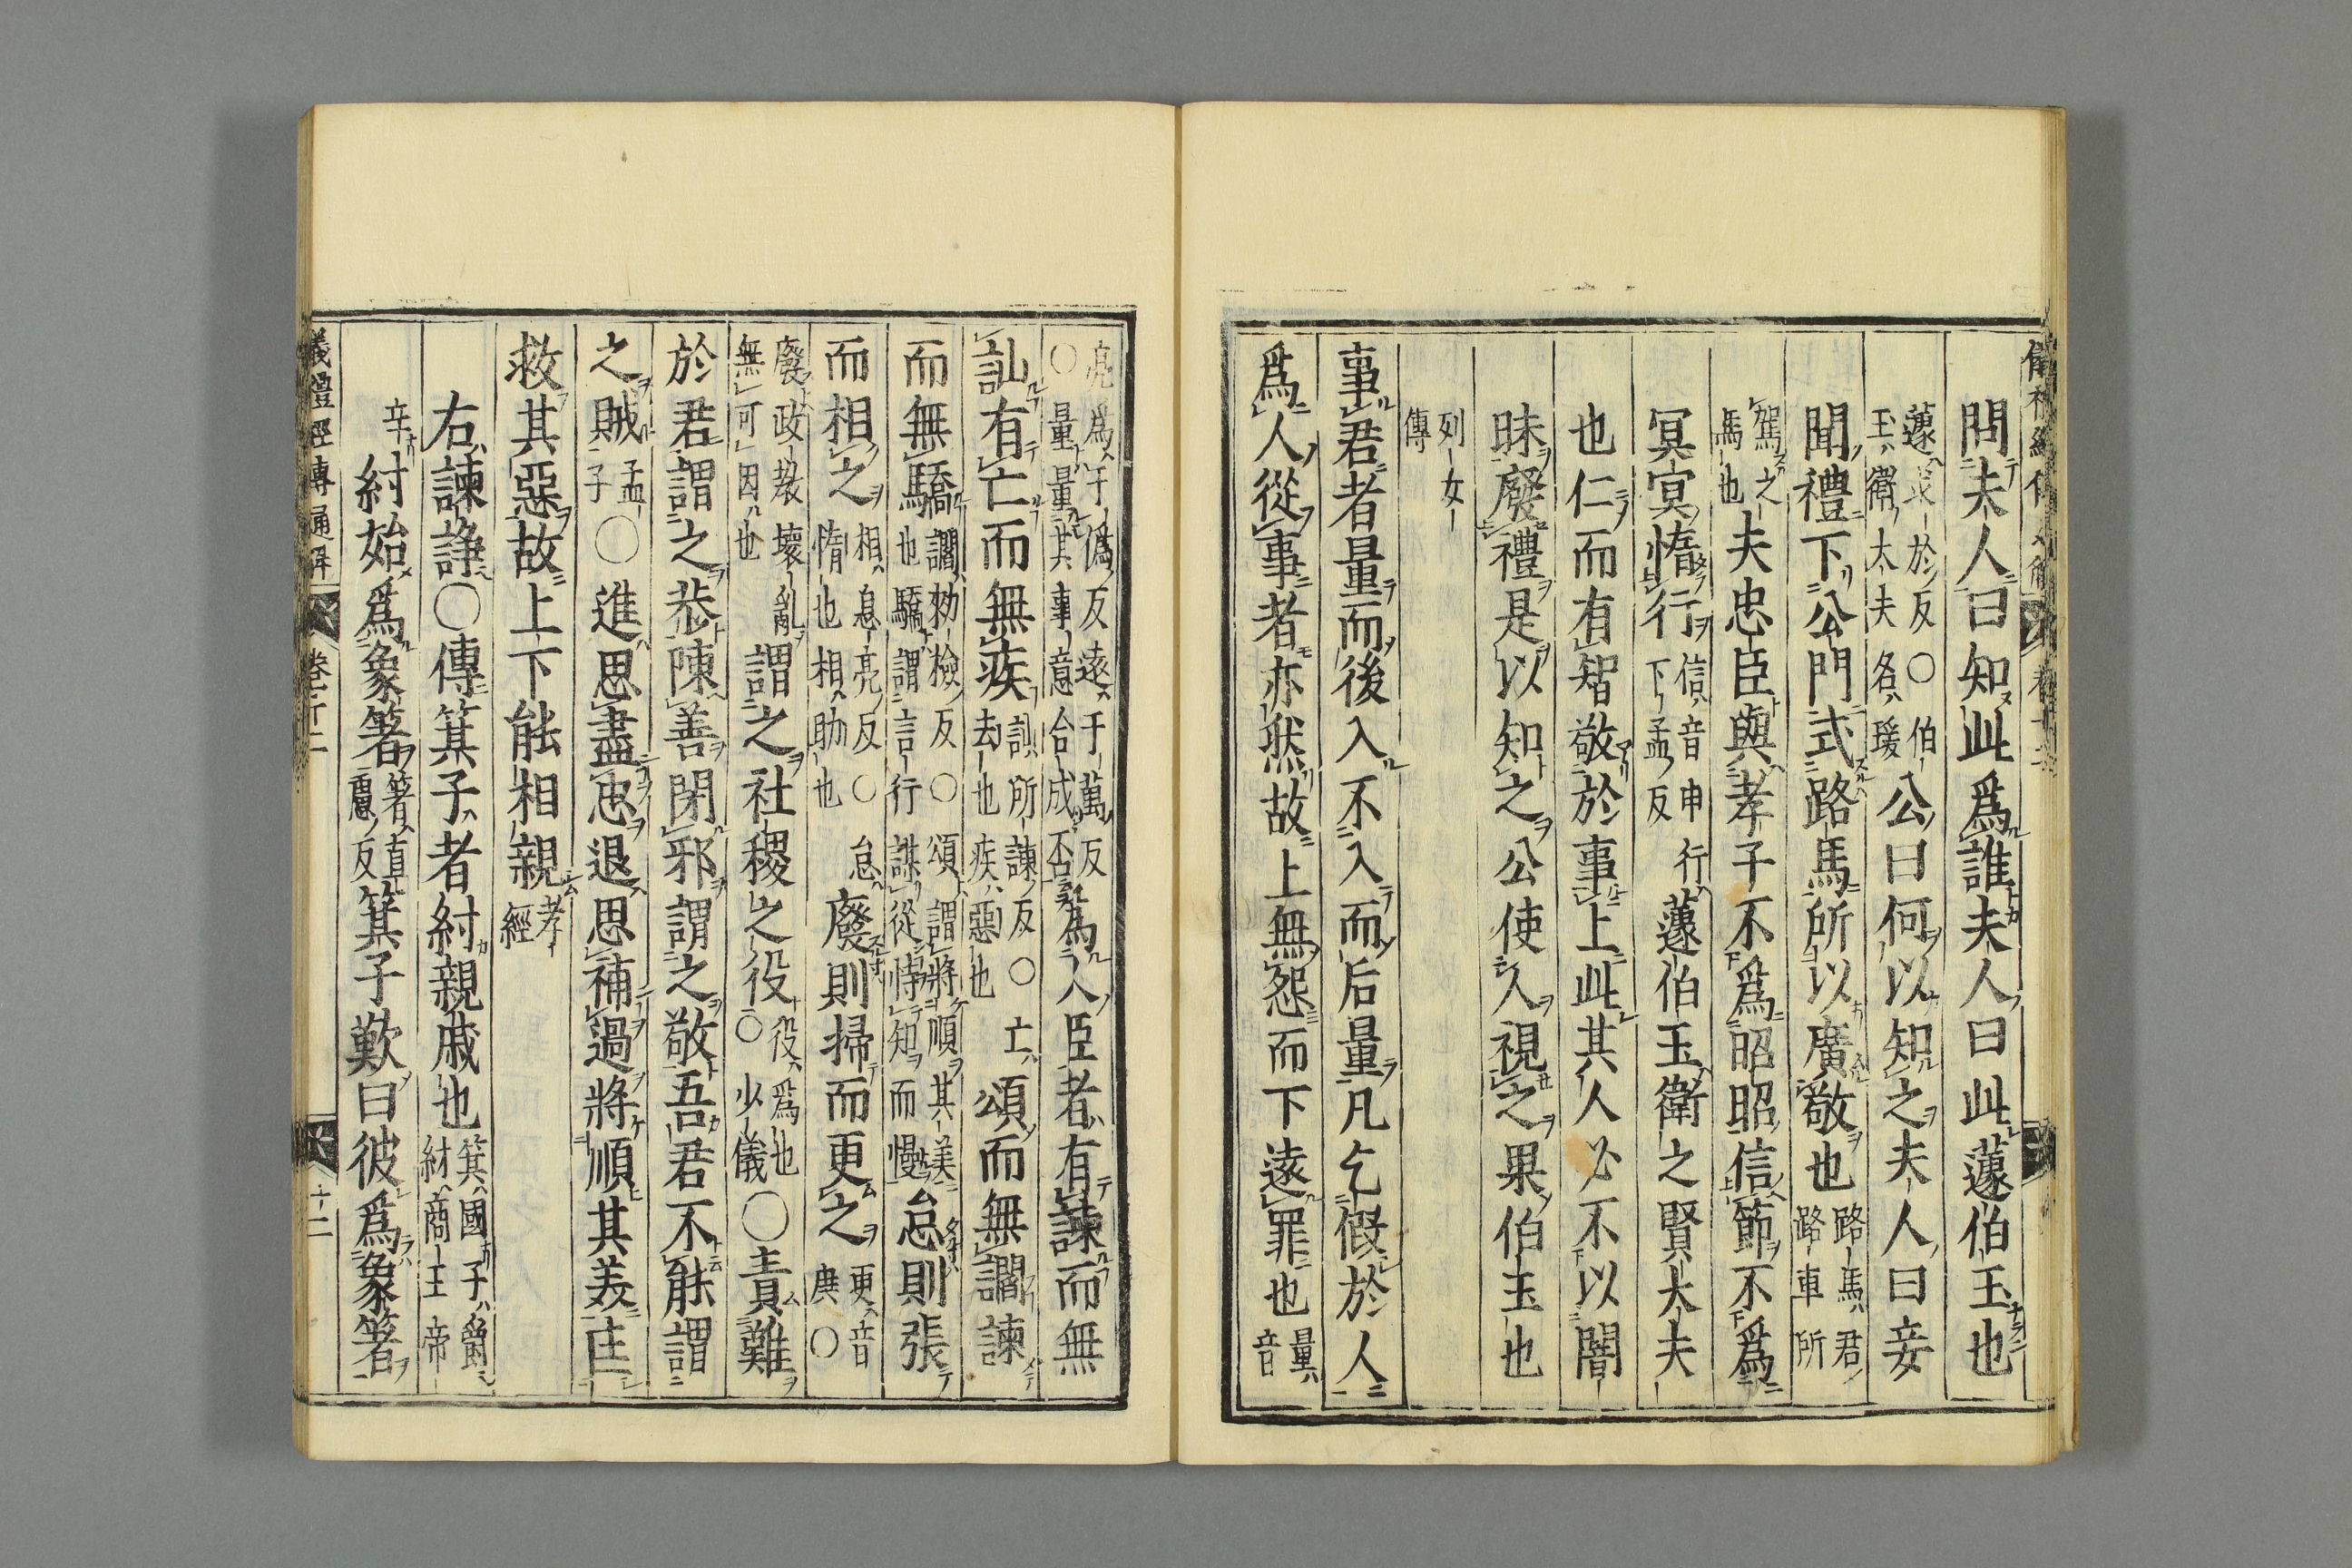 問夫人曰知此爲誰夫人曰此蘧伯玉也
蘧求於反○伯玉衛大夫名瑗公曰何以知之夫人曰妾
聞禮下公門式路馬所以廣敬也路馬君路車所
駕之馬也夫忠臣與孝子不爲昭昭信節不爲
冥冥惰行信音申行下孟反蘧伯玉衛之賢大夫
也仁而有智敬於事上此其人必不以闇
昧廢禮是以知之公使人視之果伯玉也
列女傳
事君者量而後入不入而后量凡乞假於人
爲人從事者亦然故上無怨而下遠罪也量音
亮爲于僞反遠于萬反○量量其事意合成否爲人臣者有諫而無
訕有亡而無疾訕所諫反○亡去也疾惡也頌而無讇諫
而無驕讇勑檢反○頌謂將順其美驕謂言行謀從恃知而慢怠則張
而相之相息亮反○怠惰也相助也廢則掃而更之更音庚○
廢政敎壞亂無可因也謂之社稷之役役爲也○少儀○責難
於君謂之恭陳善閉邪謂之敬吾君不能謂
之賊孟子○進思盡忠退思補過將順其美匡
救其惡故上下能相親孝經
右諫諍○傳箕子者紂親戚也箕國子爵紂商王帝
辛紂始爲象箸箸直慮反箕子歎曰彼爲象箸
儀禮經傳通解 卷十二 十二